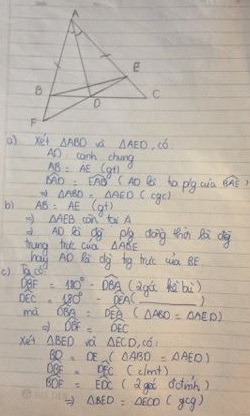 A
E
B
D
C
F
a) Xét △ABD và △AED, có:
AD: cạnh chung
AB = AE (gt)
BAD = EAD (AD là tia p/g của BAE)
⇒ △ABD = △AED (cgc)
b) AB = AE (gt)
⇒ △AEB cân tại A
⇒ AD là đg p/g đồng thời là đg
trung trực của △ABE
hay AD là đg tg trực của BE.
c) Ta có:
DBF = 180° - DBA (2 góc kề bù)
DEC = 180° - DEA (
)
mà DBA = DEA (△ABD = △AED)
⇒ DBF = DEC
Xét △BED và △ECD, có:
BD = DE (△ABD = △AED)
DBF = DEC (c/mt)
BDF = EDC (2 góc đ đỉnh)
⇒ △BED = △ECD (gcg)